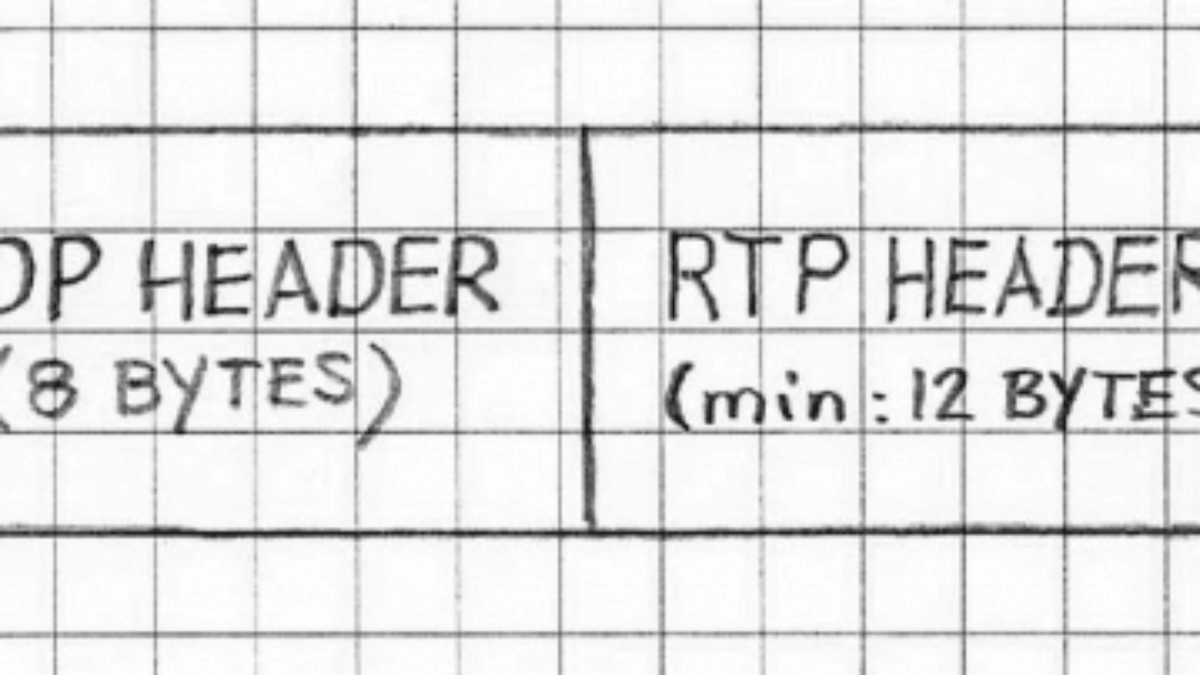 DP HEADER
(8 BYTES)
RTP HEADER
(min: 12 BYTES